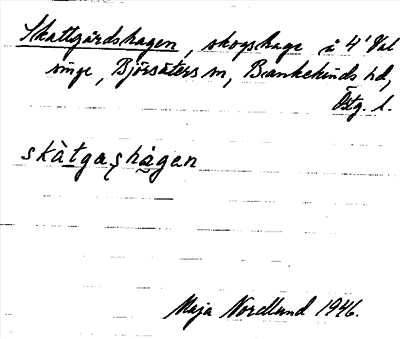 Skattgårdshagen, skogshage å 4¹ Val
singe, Björsäters sn, Bankekinds hd,
Östg. l.
skàtgaşhàgen
Maja Nordlund 1946.